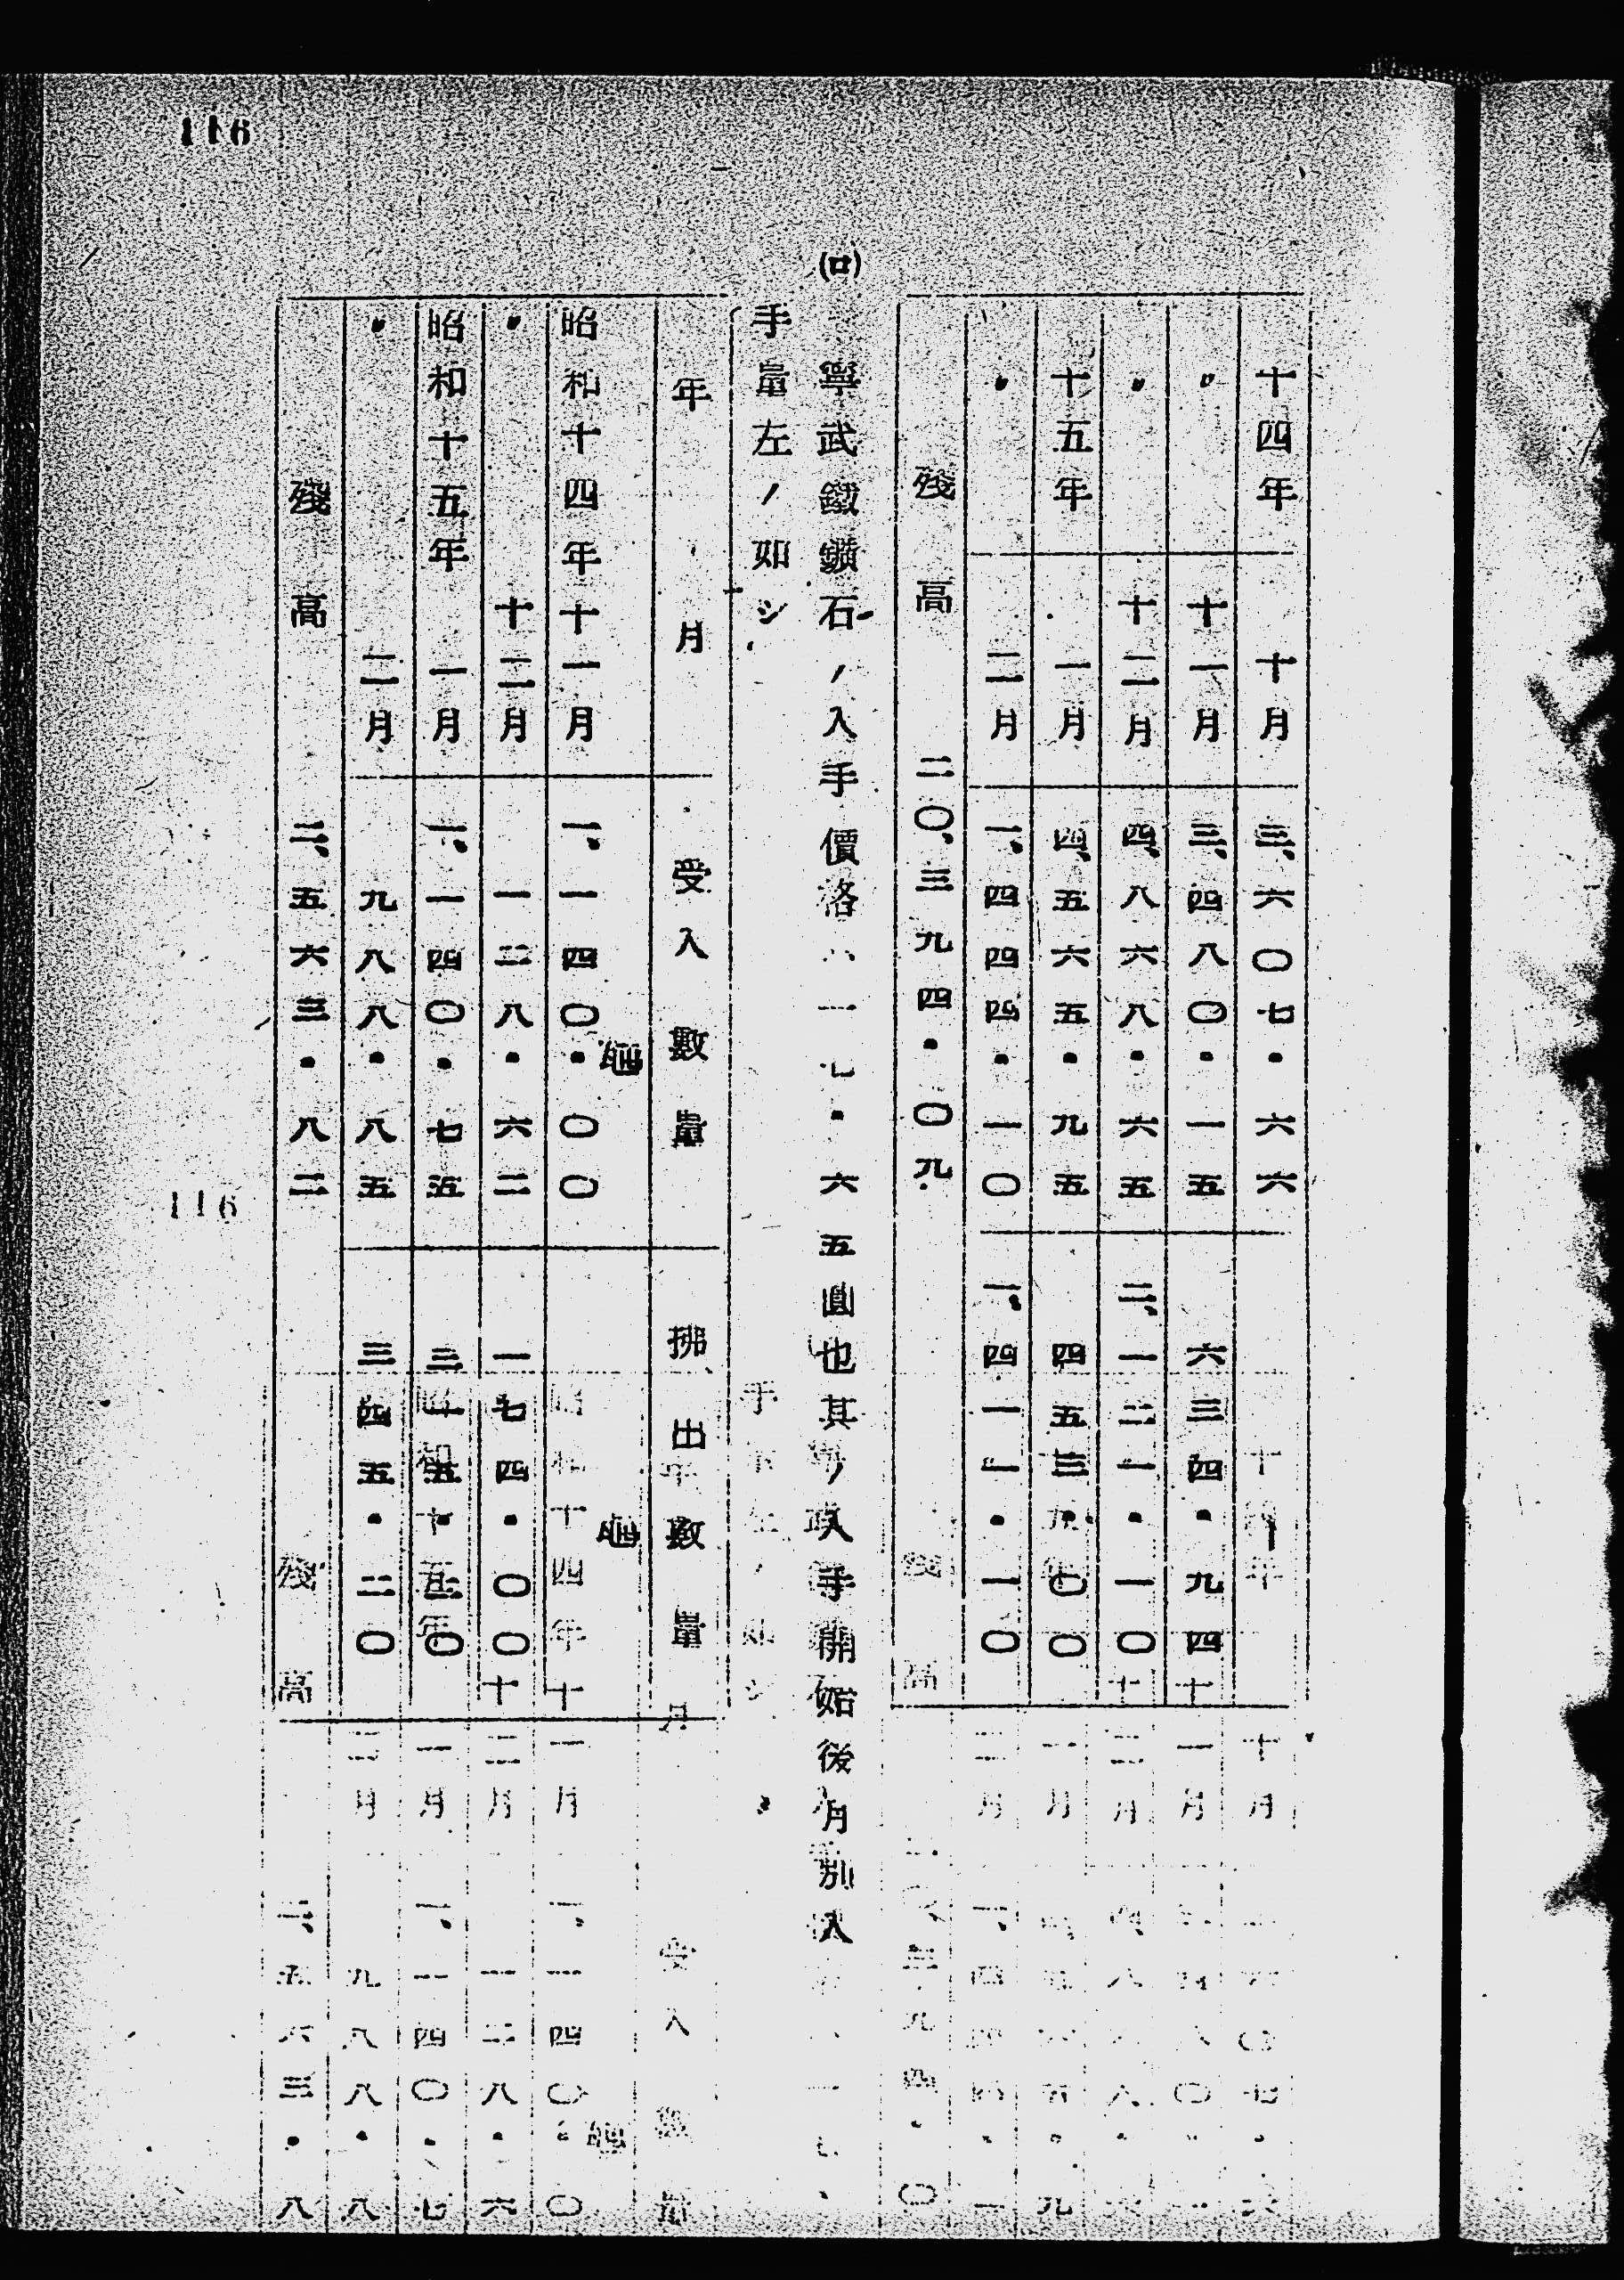 116
十四年 十月 三、六〇七・六六
〃 十一月 三、四八〇・一五 六三四・九四
〃 十二月 四、八六八・六五 二、一二一・一〇
十五年 一月 四、五六五・九五 四五三・〇〇
〃 二月 一、四四四・一〇 一、四一一・一〇
殘高 二〇、三九四・〇九
(ロ) 寧武鐵鑛石ノ入手價格ハ一七・六五圓也其ノ入手開始後月別入
手量左ノ如シ
年月 受入數量 拂出數量
昭和十四年十一月 一、一四〇・〇〇瓲 瓲
〃 十二月 一二八・六二 一七四・〇〇
昭和十五年 一月 一、一四〇・七五
〃 二月 九八八・八五 三四五・二〇
殘高 二、五六三・八二
116